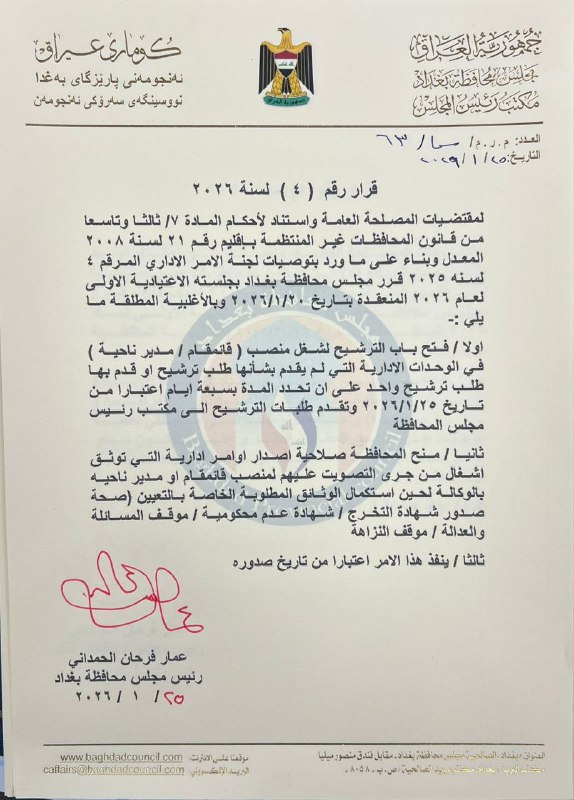 جمهورية العراق
مجلس محافظة بغداد
مكتب رئيس المجلس
كۆماری عێراق
ئەنجومەنی پارێزگای بەغدا
نووسینگەی سەرۆکی ئەنجومەن
العدد: م.ر.م/ ٦٣
التاريخ: ٢٠٢٦/١/٢٥
قرار رقم ( ٤ ) لسنة ٢٠٢٦
لمقتضيات المصلحة العامة واستناد لأحكام المادة ٧/ ثالثا وتاسعا
من قانون المحافظات غير المنتظمة بإقليم رقم ٢١ لسنة ٢٠٠٨
المعدل وبناء على ما ورد بتوصيات لجنة الامر الاداري المرقم ٤
لسنه ٢٠٢٥ قرر مجلس محافظة بغداد بجلسته الاعتيادية الاولى
لعام ٢٠٢٦ المنعقدة بتاريخ ٢٠٢٦/١/٢٠ وبالأغلبية المطلقة ما
يلي :-
اولا / فتح باب الترشيح لشغل منصب ( قائمقام / مدير ناحية )
في الوحدات الادارية التي لم يقدم بشأنها طلب ترشيح او قدم بها
طلب ترشيح واحد على ان تحدد المدة بسبعة ايام اعتبارا من
تاريخ ٢٠٢٦/١/٢٥ وتقدم طلبات الترشيح الى مكتب رئيس
مجلس المحافظة
ثانيا / منح المحافظة صلاحية اصدار اوامر إدارية التي توثق
اشغال من جرى التصويت عليهم لمنصب قائمقام او مدير ناحيه
بالوكالة لحين استكمال الوثائق المطلوبة الخاصة بالتعيين (صحة
صدور شهادة التخرج / شهادة عدم محكومية / موقف المسائلة
والعدالة / موقف النزاهة
ثالثا / ينفذ هذا الامر اعتبارا من تاريخ صدوره
عمار فرحان الحمداني
رئيس مجلس محافظة بغداد
٢٠٢٦ / ١ / ٢٥
العنوان: بغداد، الصالحية مجلس محافظة بغداد، مقابل فندق منصور ميليا
موقعنا على الانترنت: www.baghdadcouncil.com
البريد الالكتروني: caffairs@baghdadcouncil.com